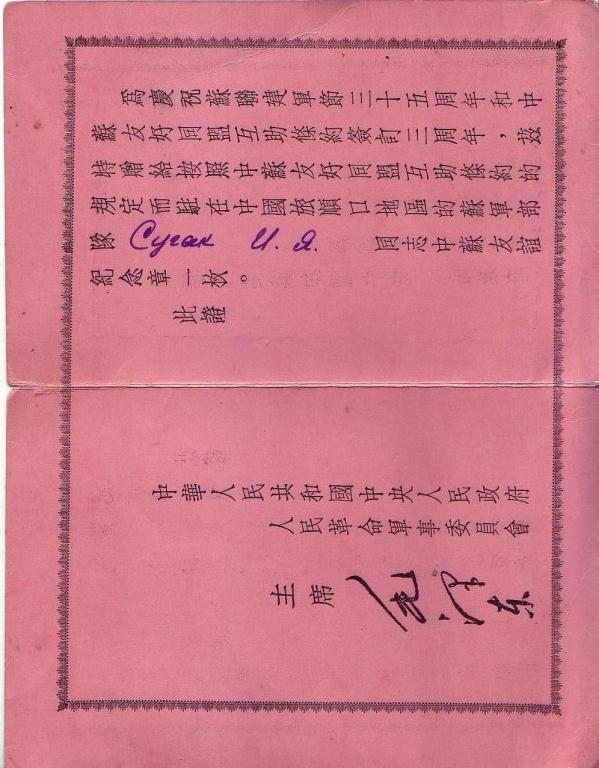 為慶祝蘇聯建軍節三十五周年和中
蘇友好同盟互助條約簽訂三周年，茲
特贈給按照中蘇友好同盟互助條約的
規定而駐在中國旅順口地區的蘇軍部
隊 Сугак И. Я. 同志中蘇友誼
紀念章一枚。
此證
中華人民共和國中央人民政府
人民革命軍事委員會
主席 毛澤东